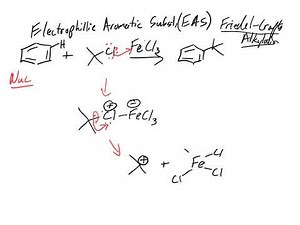 Electrophillic Aromatic Subst.(EAS) Friedel-Crafts
Alkylation
H + Cl FeCl₃
Nuc
⊕ ⊖
Cl-FeCl₃
⊕ + Fe Cl
Cl Cl